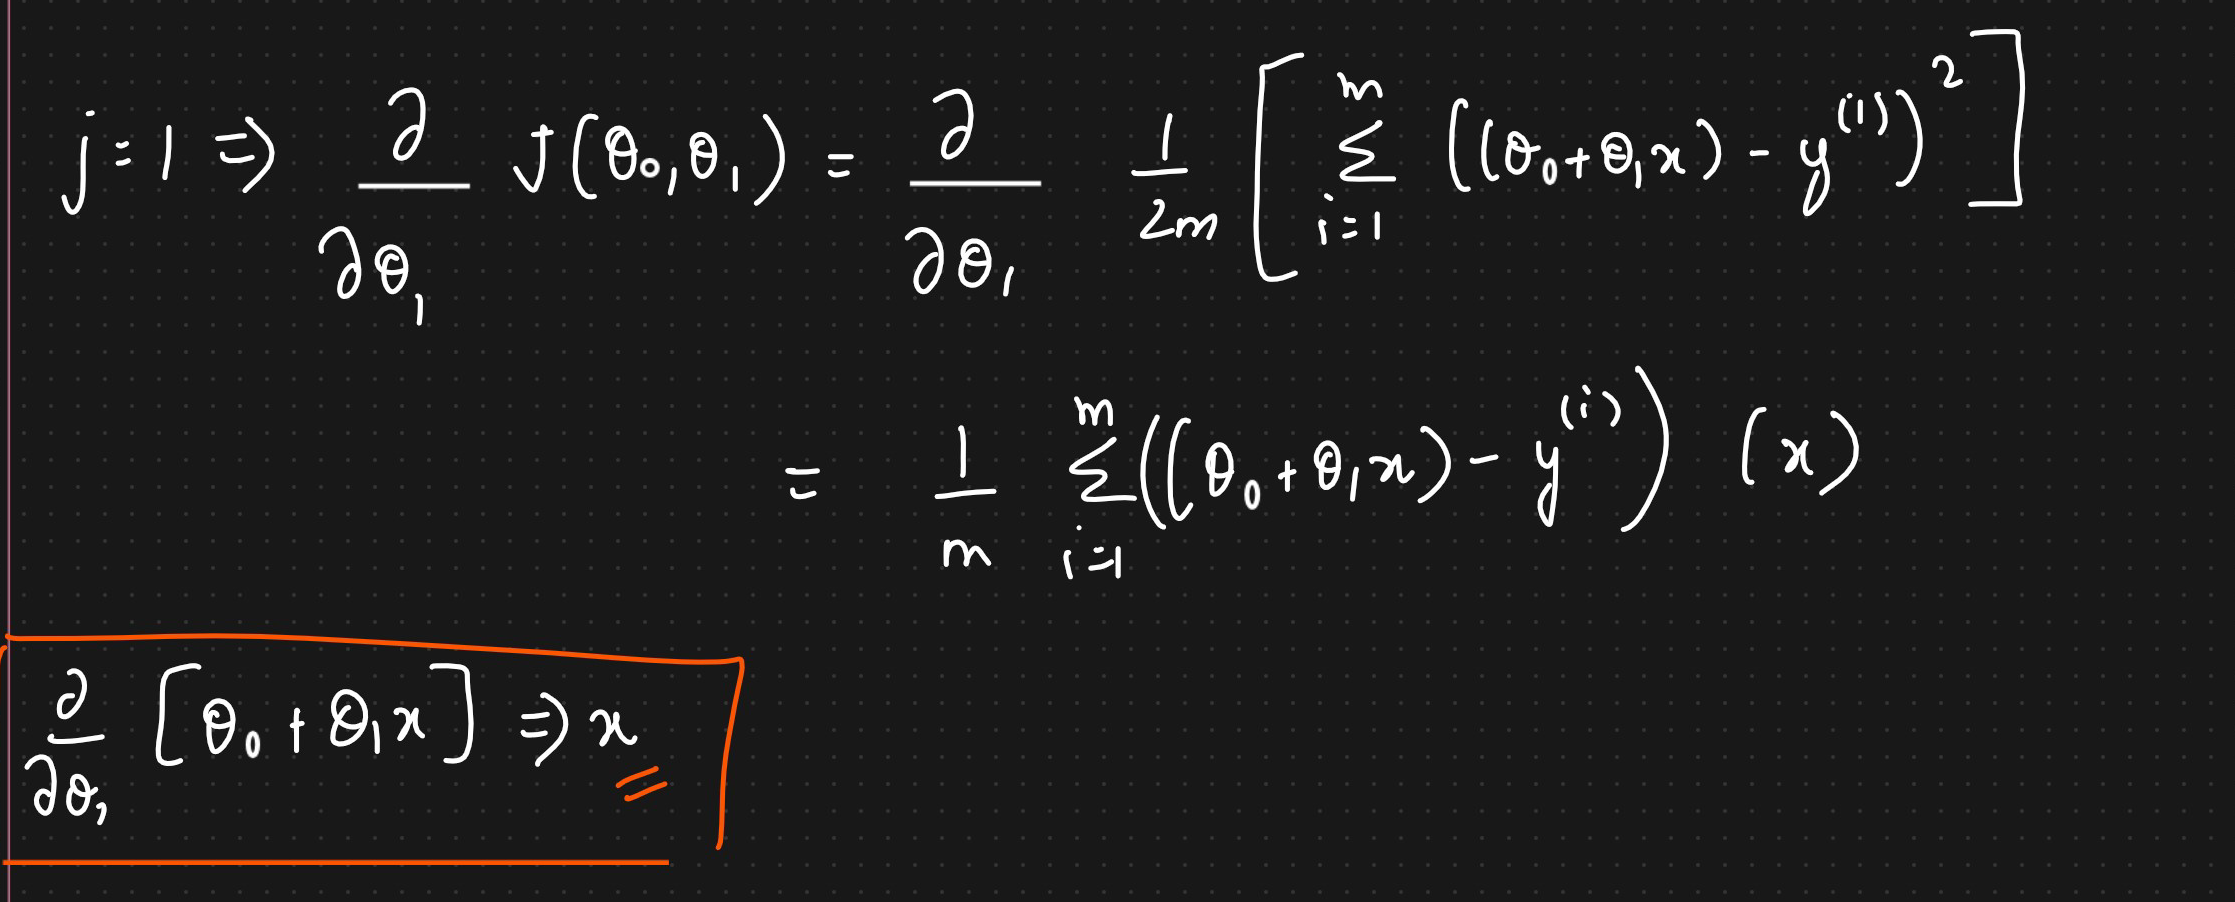 j = 1 ⇒ ∂/∂θ₁ J(θ₀, θ₁) = ∂/∂θ₁ 1/2m [ Σᵢ₌₁ᵐ ((θ₀ + θ₁x) - y⁽ⁱ⁾)² ]
= 1/m Σᵢ₌₁ᵐ ((θ₀ + θ₁x) - y⁽ⁱ⁾) (x)
∂/∂θ₁ [θ₀ + θ₁x] ⇒ x